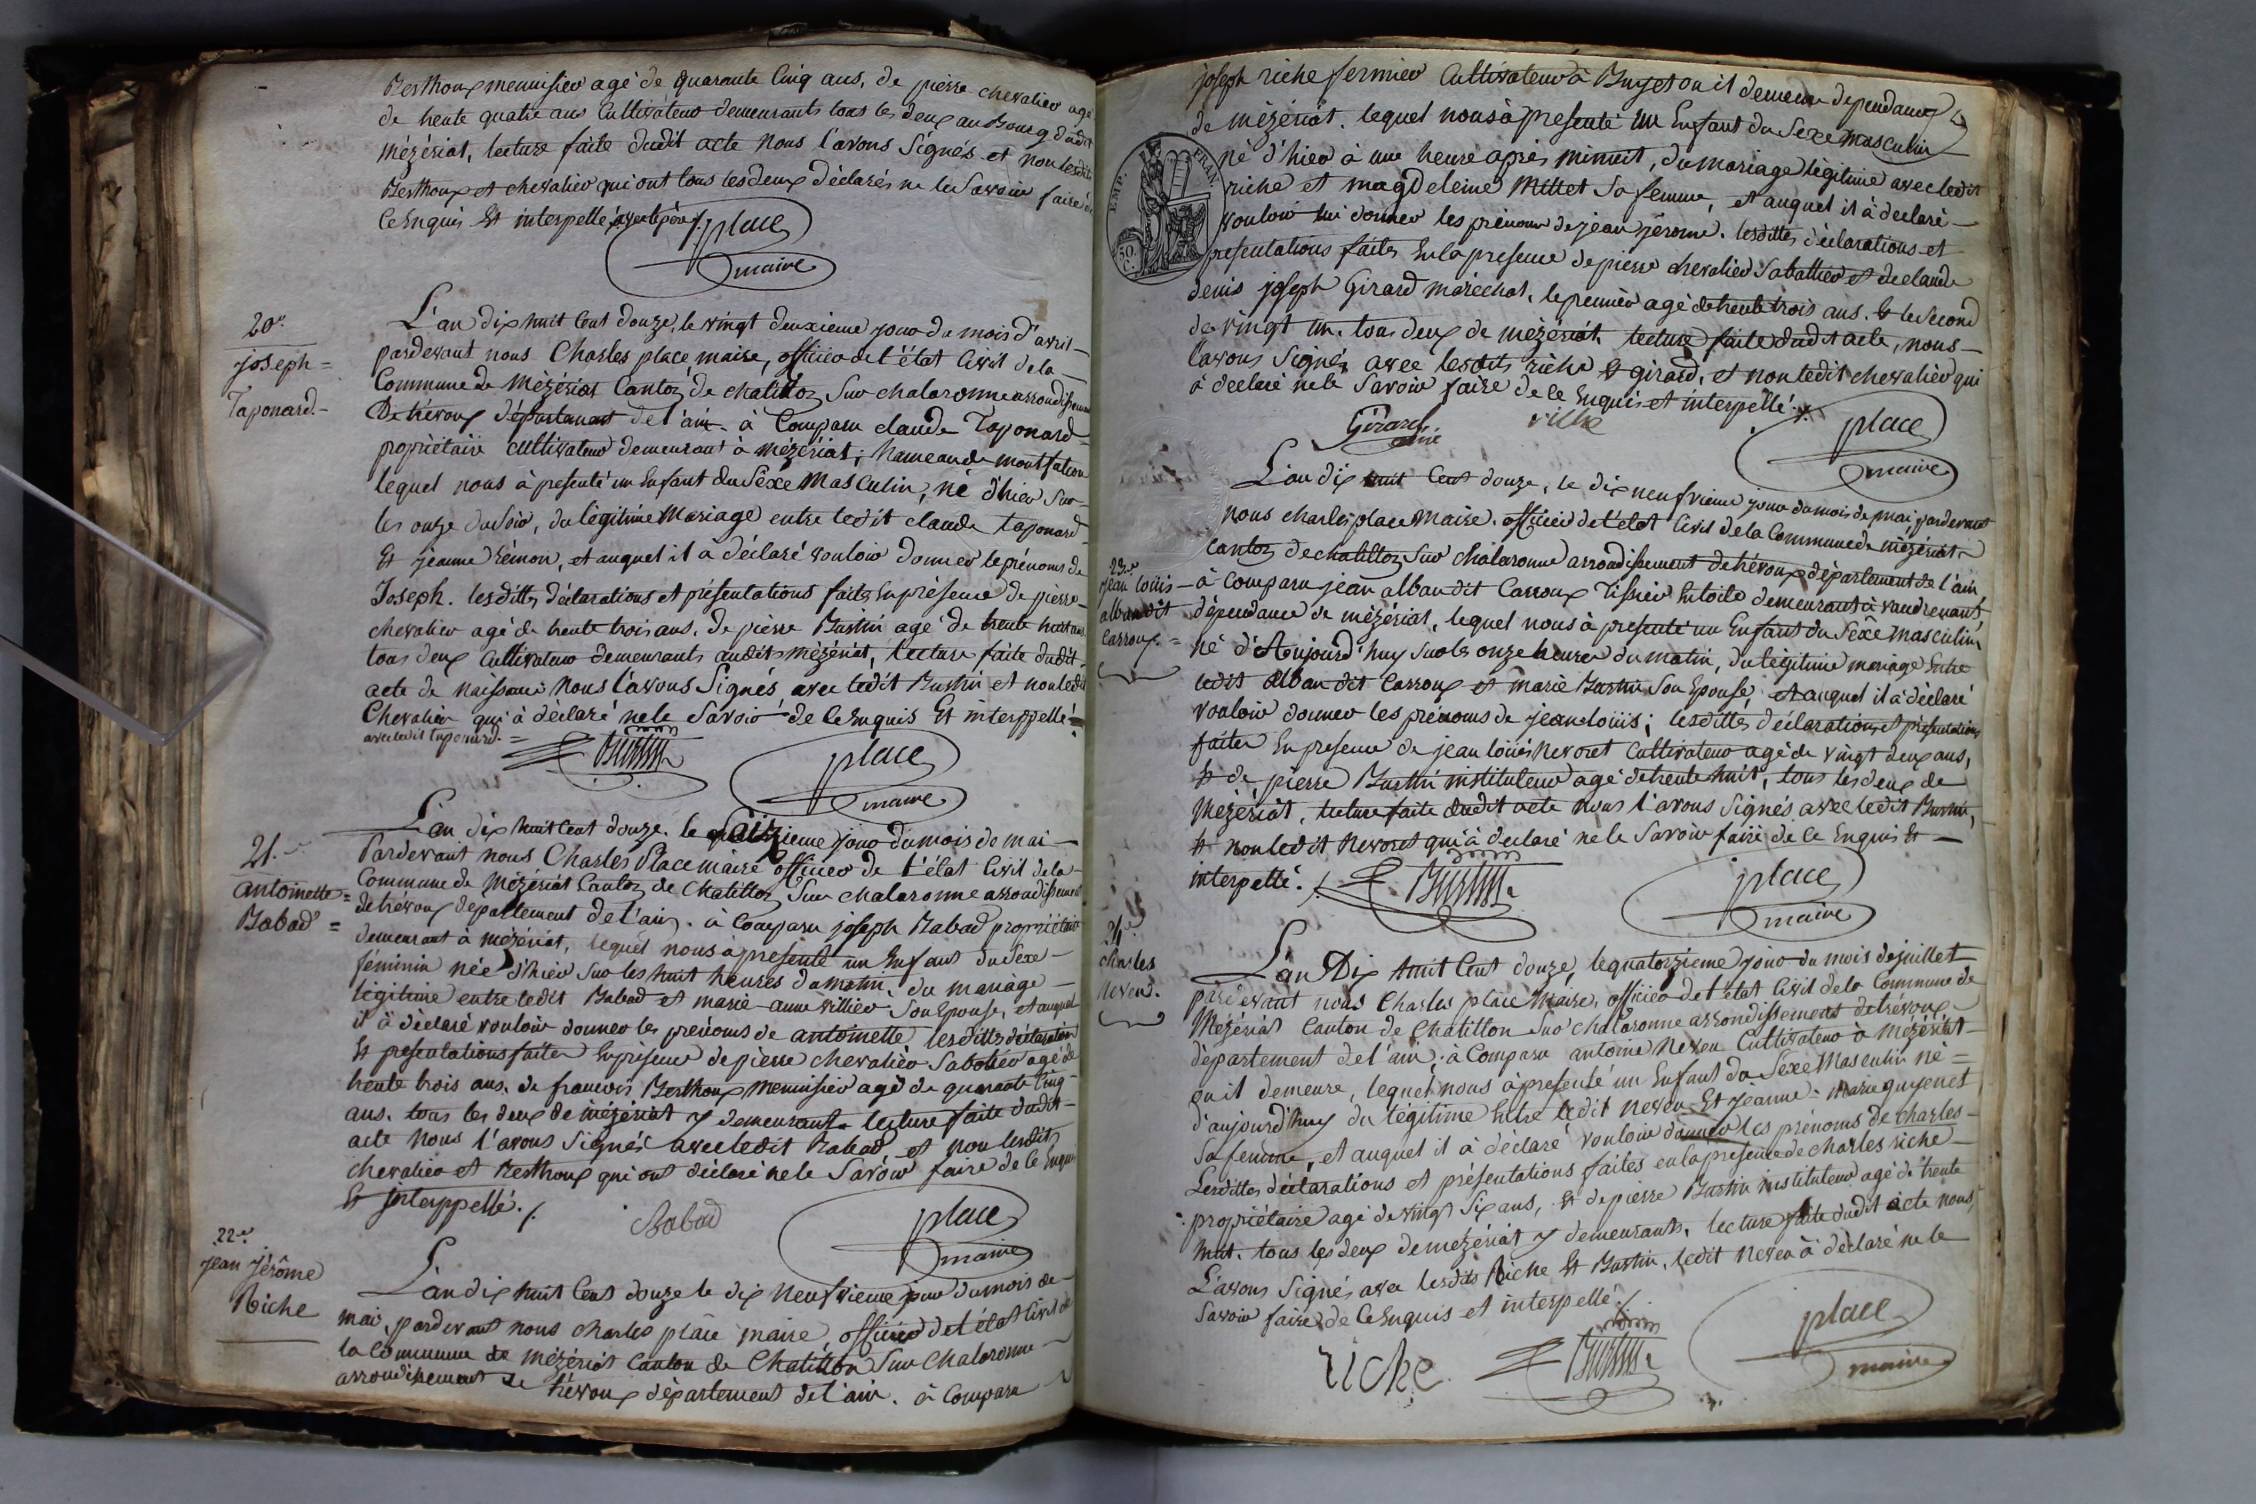 Berthoux menuisier agé de quarante Cinq ans, de pierre chevalier agé
de trente quatre ans Cultivateur demeurants tous les deux au Bourg dudit
Mézériat, lecture faite dudit acte Nous l'avons Signés et non lesdits
Berthoux et chevalier qui ont tous les deux déclarés ne le Savoir faire de
Ce Enquis Et interpellé avec le père /.
place
maire
20e.
Joseph =
Taponard. -
L'an dix huit Cent douze, le vingt deuxieme jour du mois d'avril -
pardevant nous Charles place maire, officier de l'état Civil de la -
Commune de Mézériat Canton de chatillon Sur chalaronne arrondissement
De trévoux département de l'ain. à Comparu claude Taponard -
propriètaire cultivateur demeurant à mézériat, hameau de montfalcon
lequel nous à presenté un Enfant du Séxe Masculin, né d'hier Sur -
les onze du Soir, du légitime Mariage entre ledit claude taponard -
Et jeanne rémon, et auquel il à déclaré vouloir donner le prénoms de
Joseph. lesdittes déclarations et présentations faites En présence de pierre -
chevalier agé de trente trois ans, de pièrre Burtin agé de trente huit ans
tous deux Cultivateur demeurants audit mézériat, lecture faite dudit -
acte de naissance Nous l'avons Signés avec ledit Burtin et non ledit
Chevalier qui à déclaré ne le Savoir de Ce Enquis Et interppellé =
avec ledit taponard. =
Burtin
place
maire
21.e
antoinette =
Babad =
L'an dix huit Cent douze. le jour du mois de mai -
Pardevant nous Charles Place maire officier de l'état Civil de la -
Commune de Mézériat Canton de Chatillon Sur chalaronne arrondissement
de trévoux département de l'ain. à Comparu joseph Babad propriétaire
demeurant à mézériat, lequel nous à presenté un Enfant du Sexe -
féminin née d'hier Sur les huit heures du matin. du mariage -
légitime entre ledit Babad et marie-anne villier Son Epouse, et auquel
il à déclaré vouloir donner les prénoms de antoinette lesdittes déclaration
Et presentations faites En présence de pierre chevalièr Sabotier agé de
trente trois ans. de francois Berthoux Menuisier agé de quarante Cinq -
ans. tous les deux de mézériat y demeurant. lecture faite dudit -
acte Nous l'avons Signés avec ledit Babad et non lesdits
chevalier et Berthoux qui ont déclaré ne le Savoir faire de Ce Enquis
Et interppellé. /.
Babad
place
maire
22.e
jean jérôme
Riche
L'an dix huit Cent douze le dix Neuf vieme jour du mois de -
mai, pardevant nous charles place maire, officier de l'état Civil de
la Commune de Mézériat Canton de Chatillon Sur Chalaronne -
arrondissement de trévoux département de l'ain. à Comparu
joseph riche fermier Cultivateur à Buyet ou il demeure dependance
de mézériat. lequel nous à presenté un Enfant du Sexe masculin
né d'hier à une heure après minuit, du mariage légitime avec ledit
riche et magdeleine Millet Sa femme, et auquel il à declaré -
vouloir lui donner les prénoms de jean jérome. lesdittes déclarations et
presentations faites En la presence de pierre chevalier Sabattier et de claude
denis joseph Girard maréchal, le premier agé de trente trois ans. Et le Second
de vingt un. tous deux de mézériat lecture faite dudit acte, nous -
l'avons Signés avec lesdits riche Et girard, et non ledit chevalièr qui
à declaré ne le Savoir faire de Ce Enquis et interpellé. /.
EMP. FRAN.
50 C.
Girard
riche
place
maire
23.e
jean loüis -
alban dit -
Carroux. =
L'an dix huit Cent douze, le dix neuf vieme jour du mois de mai pardevant
nous charles place Maire. officier de l'état Civil de la Commune de mézériat
Canton de chatillon Sur chalaronne arrondissement de trévoux département de l'ain,
à Comparu jean alban dit Carroux Tissier En toile demeurant à vaudrenant,
dépendance de mézériat, lequel nous à presenté un Enfant du Séxe Masculin
né d'Aujourd'huy Sur les onze heures du matin, du légitime mariage Entre
ledit alban dit Carroux et marie Burtin Son Epouse, et auquel il à déclaré
vouloir donner les prénoms de jean loüis; lesdittes déclarations et présentations
faites En presence de jean loüis Nevoret Cultivateur agé de vingt deux ans,
Et de pierre Burtin instituteur agé de trente huit, tous les deux de
Mézériat, lecture faite dudit acte nous l'avons Signés avec ledit Burtin,
Et non ledit Nevoret qui à declaré ne le Savoir faire de Ce Enquis Et -
interpellé. /.
Burtin
place
maire
24.e
charles
Neveu.
L'an Dix huit Cent douze, le quatorzieme jour du mois de juillet
pardevant nous Charles place Maire, officier de l'état Civil de la Commune de
Mézériat Canton de Chatillon Sur chalaronne arrondissement de trévoux -
département de l'ain; à Comparu antoine Neveu Cultivateur à Mézériat -
ou il demeure, lequel nous à presenté un Enfant du Sexe Masculin né =
d'aujourd'huy du légitime Entre ledit neveu Et jeanne-Marie guyenet
Sa femme, et auquel il à déclaré vouloir donner les prénoms de charles -
Lesdittes déclarations et présentations faites en la présence de charles riche -
propriétaire agé de vingt Six ans, Et de pierre Burtin instituteur agé de trente
huit. tous les deux de mézériat y demeurants. lecture faite dudit acte nous
L'avons Signés avec lesdits Riche Et Burtin, ledit Neveu à déclaré ne le
Savoir faire de Ce Enquis et interpellé. /.
riche
Burtin
place
maire